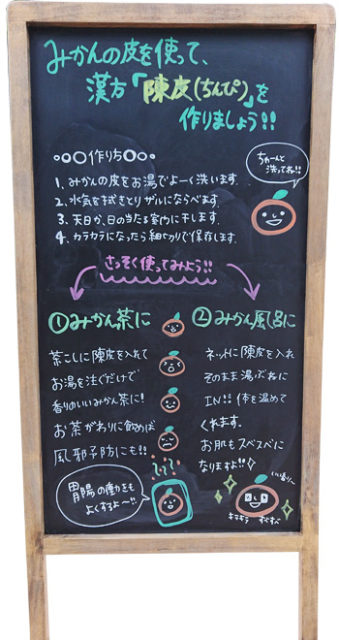 みかんの皮を使って、
漢方「陳皮(ちんぴ)」を
作りましょう!!
○○○作り方○○○
ちゃーんと
洗ってね!!
1、みかんの皮をお湯でよーく洗います。
2、水気を拭きとりザルにならべます。
3、天日か、日の当たる室内に干します。
4、カラカラになったら細かくりで保存します。
さっそく使ってみよう!!
①みかん茶に
茶こしに陳皮を入れて
お湯を注ぐだけで
香りのいいみかん茶に!
お茶がわりに飲めば
風邪予防にも!!
胃腸の働きも
よくするよ〜!!
②みかん風呂に
ネットに陳皮を入れ
そのまま湯ぶねに
IN!! 体を温めて
くれます。
お肌もスベスベに
なりますよ!!
いい香り〜
キラキラ すべすべ